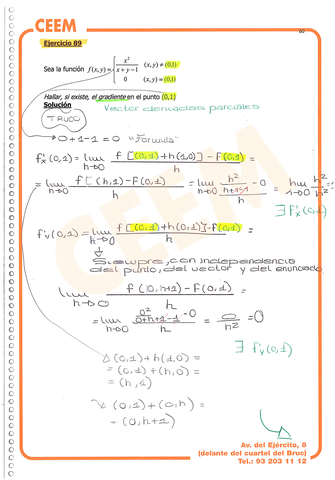 CEEM
60
Ejercicio 89
Sea la función f(x,y) = { x²/(x+y−1) (x,y) ≠ (0,1)
0 (x,y) = (0,1)
Hallar, si existe, el gradiente en el punto (0,1)
Solución
Vector derivadas parciales
TRUCO
0+1-1=0 "Fórmula"
f'x(0,1) = lim h→0 f[(0,1)+h(1,0)]-f(0,1) / h =
= lim h→0 f(h,1)-f(0,1) / h = lim h→0 h²/(h+1-1) - 0 / h = lim h→0 h²/h²
∃ f'x(0,1)
f'y(0,1) = lim h→0 f[(0,1)+h(0,1)]-f(0,1) / h =
Siempre, con independencia
del punto, del vector y del enunciado
lim h→0 f(0,h+1)-f(0,1) / h =
= lim h→0 0²/(0+h+1-1) - 0 / h = 0/h² = 0
∃ f'y(0,1)
(0,1)+h(1,0) =
= (0,1)+(h,0) =
= (h,1)
(0,1)+(0,h) =
= (0,h+1)
Av. del Ejército, 8
(delante del cuartel del Bruc)
Tel.: 93 203 11 12